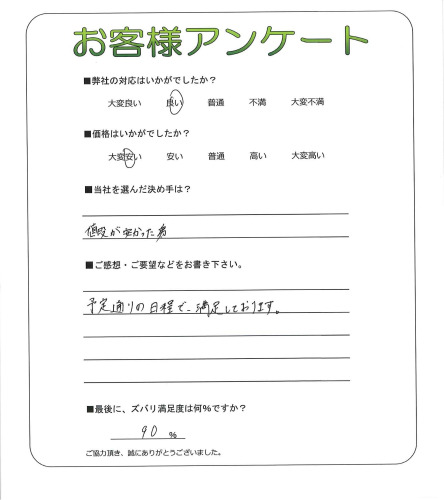 お客様アンケート
■弊社の対応はいかがでしたか？
大変良い 良い 普通 不満 大変不満
■価格はいかがでしたか？
大変安い 安い 普通 高い 大変高い
■当社を選んだ決め手は？
値段が安かった為
■ご感想・ご要望などをお書き下さい。
予定通りの日程で、満足しております。
■最後に、ズバリ満足度は何%ですか？
90 %
ご協力頂き、誠にありがとうございました。